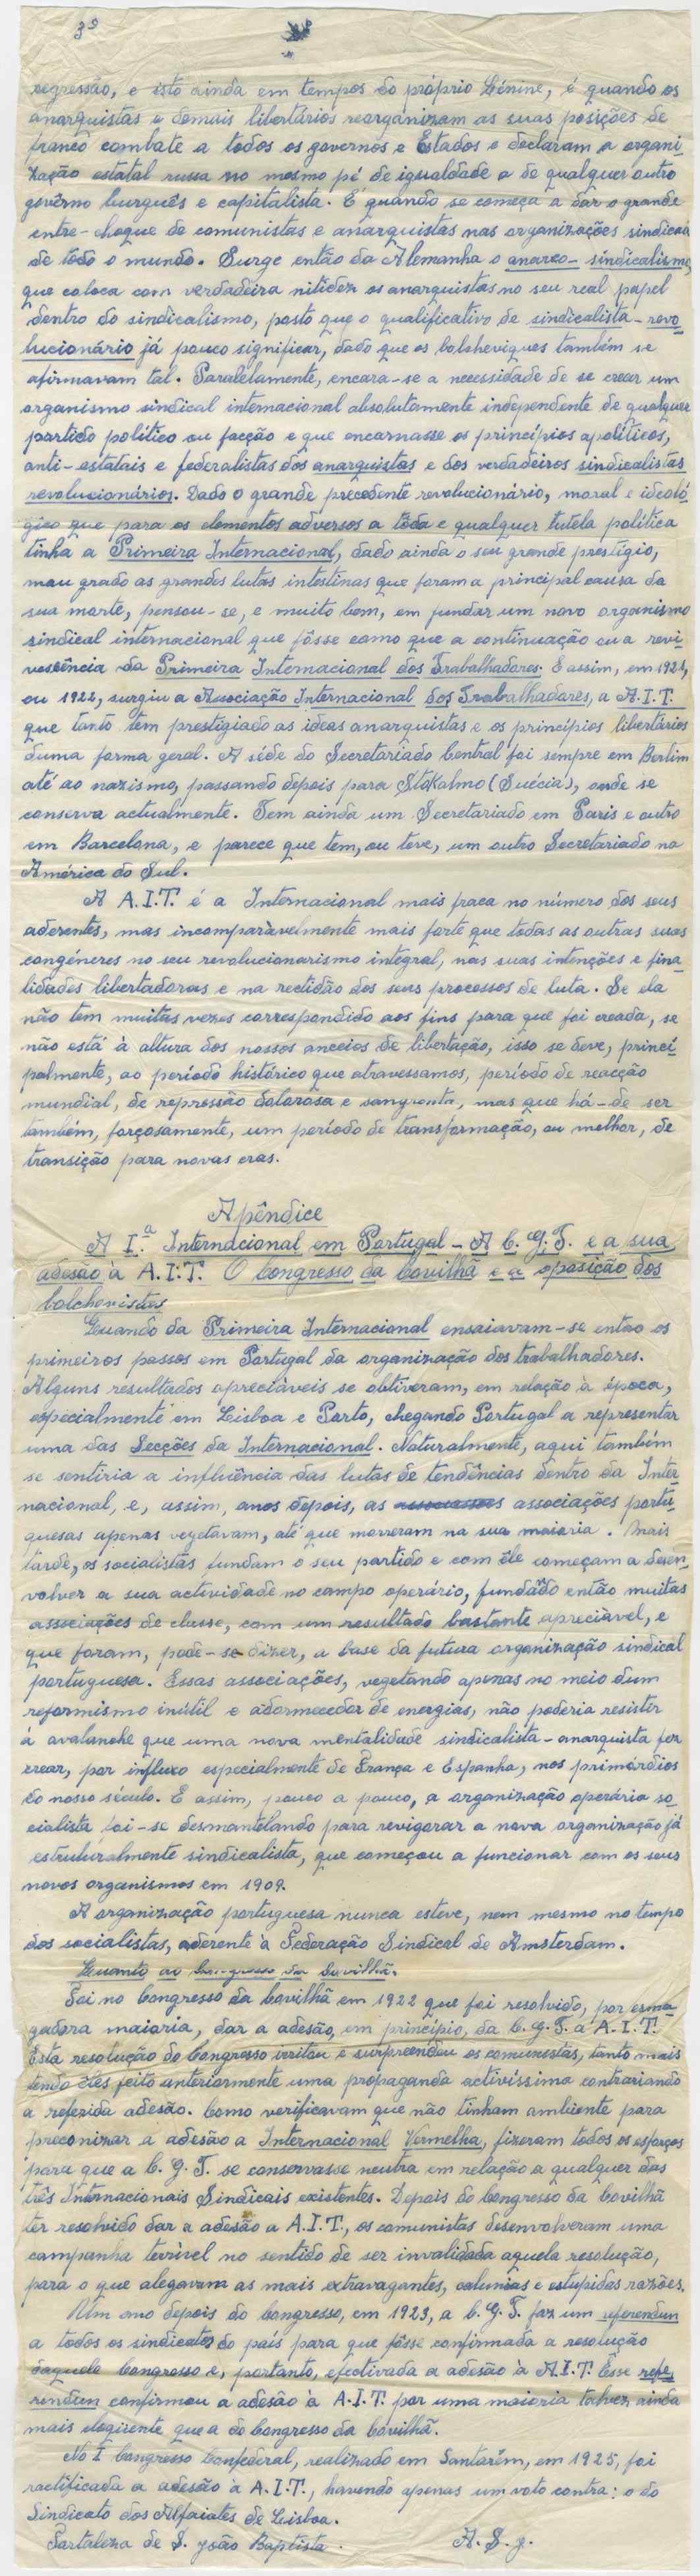 3º
regressão, e isto ainda em tempos do próprio Lénine, é quando os
anarquistas e demais libertários reorganizam as suas posições de
franco combate a todos os governos e Estados e declaram a organi-
zação estatal russa no mesmo pé de igualdade a de qualquer outro
govêrno burguês e capitalista. É quando se começa a dar o grande
entre-choque de comunistas e anarquistas nas organizações sindicais
de todo o mundo. Surge então da Alemanha o anarco-sindicalismo,
que coloca com verdadeira nitidez os anarquistas no seu real papel
dentro do sindicalismo, posto que o qualificativo de sindicalista-revo-
lucionário já pouco significar, dado que os bolcheviques também se
afirmavam tal. Paralelamente, encara-se a necessidade de se crear um
organismo sindical internacional absolutamente independente de qualquer
partido político ou facção e que encarnasse os princípios apolíticos,
anti-estatais e federalistas dos anarquistas e dos verdadeiros sindicalistas
revolucionários. Dado o grande precedente revolucionário, moral e ideoló-
gico que para os elementos adversos a tôda e qualquer tutela política
tinha a Primeira Internacional, dado ainda o seu grande prestígio,
mau grado as grandes lutas intestinas que foram a principal causa da
sua morte, pensou-se, e muito bem, em fundar um novo organismo
sindical internacional que fôsse como que a continuação ou a revi-
vescência da Primeira Internacional dos Trabalhadores. E assim, em 1921,
ou 1922, surgiu a Associação Internacional dos Trabalhadores, a A.I.T.
que tanto tem prestigiado as ideas anarquistas e os princípios libertários
duma forma geral. A séde do Secretariado Central foi sempre em Berlim
até ao nazismo, passando depois para Stokalmo (Suécia), onde se
conserva actualmente. Tem ainda um Secretariado em Paris e outro
em Barcelona, e parece que tem, ou teve, um outro Secretariado na
América do Sul.
A A.I.T. é a Internacional mais fraca no número dos seus
aderentes, mas incomparàvelmente mais forte que todas as outras suas
congéneres no seu revolucionarismo integral, nas suas intenções e fina-
lidades libertadoras e na rectidão dos seus processos de luta. Se ela
não tem muitas vezes correspondido aos fins para que foi creada, se
não está à altura dos nossos anceios de libertação, isso se deve, princi-
palmente, ao período histórico que atravessamos, período de reacção
mundial, de repressão dolorosa e sangrenta, mas que há-de ser
também, forçosamente, um período de transformação, ou melhor, de
transição para novas eras.
Apêndice
A I.ª Internacional em Portugal - A C.G.T. e a sua
adesão à A.I.T. O Congresso da Covilhã e a oposição dos
bolchevistas
Quando da Primeira Internacional ensaiavam-se então os
primeiros passos em Portugal da organização dos trabalhadores.
Alguns resultados apreciáveis se obtiveram, em relação à época,
especialmente em Lisboa e Porto, chegando Portugal a representar
uma das Secções da Internacional. Naturalmente, aqui também
se sentiria a influência das lutas de tendências dentro da Inter-
nacional, e, assim, anos depois, as associações portu-
guesas apenas vegetavam, até que morreram na sua maioria. Mais
tarde, os socialistas fundam o seu partido e com êle começam a desen-
volver a sua actividade no campo operário, fundado então muitas
associações de classe, com um resultado bastante apreciável, e
que foram, pode-se dizer, a base da futura organização sindical
portuguesa. Essas associações, vegetando apenas no meio dum
reformismo inútil e adormecedor de energias, não poderia resistir
à avalanche que uma nova mentalidade sindicalista-anarquista fez
crear, por influxo especialmente de França e Espanha, nos primórdios
do nosso século. E assim, pouco a pouco, a organização operária so-
cialista foi-se desmantelando para revigorar a nova organização já
estruturalmente sindicalista, que começou a funcionar com os seus
novos organismos em 1909.
A organização portuguesa nunca esteve, nem mesmo no tempo
dos socialistas, aderente à Federação Sindical de Amsterdam.
Quanto ao Congresso da Covilhã.
Foi no Congresso da Covilhã em 1922 que foi resolvido, por esma-
gadora maioria, dar a adesão, em princípio, da C.G.T. a A.I.T.
Esta resolução do Congresso irritou e surpreendeu os comunistas, tanto mais
tendo êles feito anteriormente uma propaganda activíssima contrariando
a referida adesão. Como verificavam que não tinham ambiente para
preconizar a adesão a Internacional Vermelha, fizeram todos os esforços
para que a C.G.T. se conservasse neutra em relação a qualquer das
três Internacionais Sindicais existentes. Depois do Congresso da Covilhã
ter resolvido dar a adesão a A.I.T., os comunistas desenvolveram uma
campanha terrível no sentido de ser invalidada aquela resolução,
para o que alegavam as mais extravagantes, calunias e estupidas razões.
Um ano depois do Congresso, em 1923, a C.G.T. faz um referendun
a todos os sindicatos do país para que fôsse confirmada a resolução
daquele Congresso e, portanto, efectivada a adesão à A.I.T. Esse refe-
rendun confirmou a adesão à A.I.T. por uma maioria talvez ainda
mais eloqüente que a do Congresso da Covilhã.
No I Congresso Confederal, realizado em Santarém, em 1925, foi
ractificada a adesão à A.I.T., havendo apenas um voto contra: o do
Sindicato dos Alfaiates de Lisboa.
Fortaleza de S. João Baptista. A.S.J.